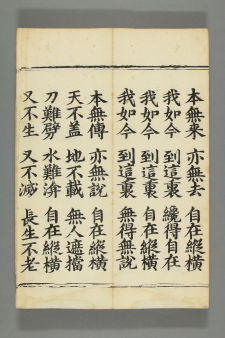 本無來　亦無去　自在縱橫
我如今　到這裏　纔得自在
我如今　到這裏　自在縱橫
我如今　到這裏　無得無說
本無傳　亦無說　自在縱橫
天不蓋　地不載　無人遮擋
刀難劈　水難渰　自在縱橫
又不生　又不滅　長生不老